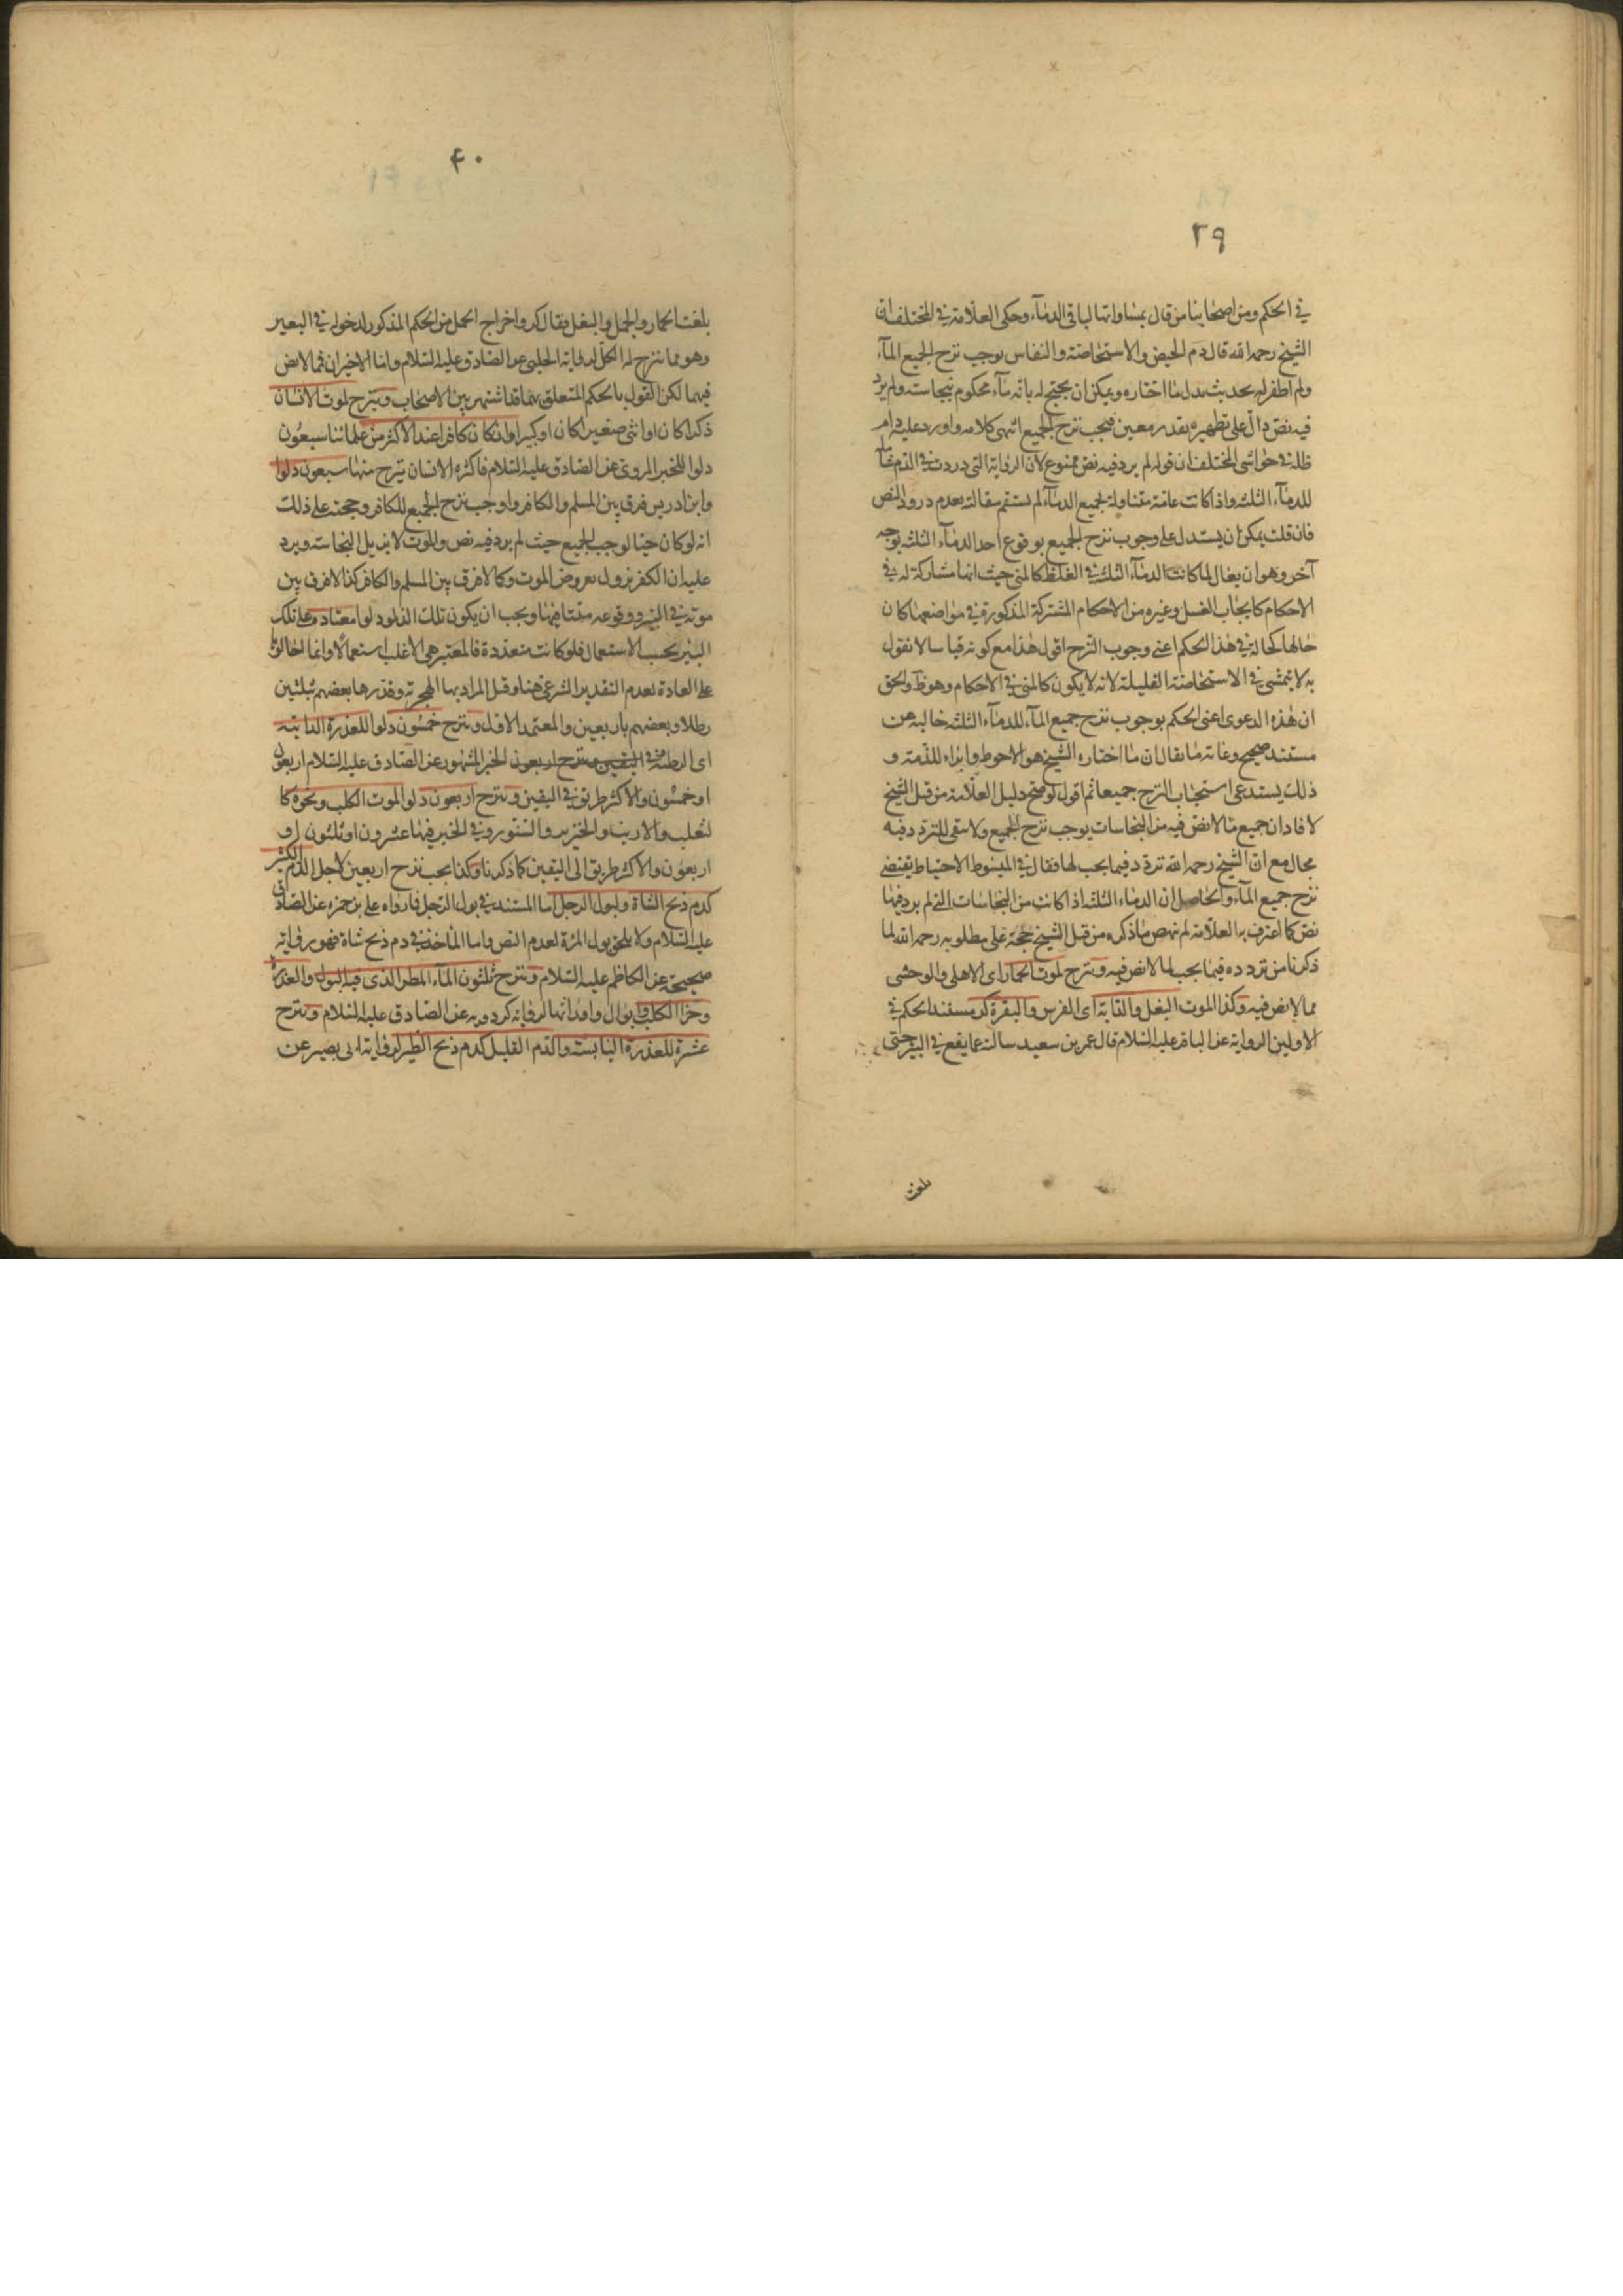 ٣٩
في الحكم ومن اصحابنا من قال بمساواتها لباقي الدماء وحكى العلامة في المختلف ان
الشيخ رحمه الله قال دم الحيض والاستحاضة والنفاس يوجب نزح الجميع الماء
ولم اظفر له بحديث يدل ما اختاره ويمكن ان يحتج له بانه ماء محكوم بنجاسته ولم يرد
فيه نص دال على تطهيره بقدر معين فيجب نزح الجميع انتهى كلامه واورد عليه دام
ظله في حواشي المختلف ان قوله لم يرد فيه نص ممنوع لان الرواية التي وردت في الدم
للدماء الثلثه واذا كانت عامة متناولة لجميع الدماء لم يستقم مقالة بعدم ورود النص
فان قلت يمكن ان يستدل على وجوب نزح الجميع بوقوع احد الدماء الثلثه بوجه
آخر وهو ان يقال لما كانت الدماء الثلثة في الغلظ كالمني حيث انها مشاركة له في
الاحكام كايجاب الغسل وغيره من الاحكام المشتركة المذكورة في مواضعها كان
حالها كحاله في هذا الحكم اعني وجوب النزح اقول هذا مع كونه قياسا لا نقول
به لا يتمشى في الاستحاضة القليلة لانه لا يكون كالمني في الاحكام وهو ظ والحق
ان هذه الدعوى اعني الحكم بوجوب نزح جميع الماء للدماء الثلثه خالية عن
مستند صحيح وغاية ما يقال ان ما اختاره الشيخ هو الاحوط وابراء للذمة و
ذلك يستدعي استحباب النزح جميعا ثم اقول لو صح دليل العلامة من قبل الشيخ
لافاد ان جميع ما لا نص فيه من النجاسات يوجب نزح الجميع ولا يبقى للتردد فيه
مجال مع ان الشيخ رحمه الله تردد فيما يجب لها فقال في المبسوط الاحتياط يقتضي
نزح جميع الماء والحاصل ان الدماء الثلثه اذا كانت من النجاسات التي لم يرد فيها
نص كما اعترف به العلامة لم ينهض ما ذكره من قبل الشيخ حجة على مطلوبه رحمه الله لما
ذكرنا من تردده فيما يجب لما لا نص فيه وينزح لموت الحمار اى الاهلي والوحشي
مما لا نص فيه وكذا لموت البغل والدابة اى الفرس والبقرة كر مستند الحكم في
الاولين الرواية عن الباقر عليه السلام قال عمر بن سعيد سالته عما يقع في البئر حتى
بلغت
٤٠
بلغت الحمار والجمل والبغل فقال كر واخراج الجمل من الحكم المذكور لدخوله في البعير
وهو مما ينزح له الكل لرواية الحلبي عن الصادق عليه السلام واما الاخيران فما لا نص
فيهما لكن القول بالحكم المتعلق بهما قد اشتهر بين الاصحاب وينزح لموت الانسان
ذكرا كان او انثى صغيرا كان او كبيرا وان كان كافرا عند الاكثر من علمائنا سبعون
دلوا للخبر المروى عن الصادق عليه السلام فاكثره الانسان ينزح منها سبعون دلوا
وابن ادريس فرق بين المسلم والكافر واوجب نزح الجميع للكافر وحجته على ذلك
انه لو كان حيا لوجب الجميع حيث لم يرد فيه نص والموت لا يزيل النجاسة ويرد
عليه ان الكفر يزول بعروض الموت وكما لا فرق بين المسلم والكافر كذا لا فرق بين
موته في البئر ووقوعه ميتا فيها ويجب ان يكون تلك الدلو دلوا معتادة على تلك
البئر بحسب الاستعمال فلو كانت متعددة فالمعتبر هي الاغلب استعمالا وانما
على العادة لعدم التقدير الشرعي هنا وقيل المراد بها الهجرية وقدرها بعضهم بثلثين
رطلا وبعضهم باربعين والمعتمد الاول وينزح خمسون دلوا للعذرة الذائبة
اى الرطبة في اليقين وينزح اربعون الخبر المشهور عن الصادق عليه السلام اربعون
او خمسون والاكثر طريق في اليقين وينزح اربعون دلوا لموت الكلب ونحوه كا
لثعلب والارنب والخنزير والسنور وفي الخبر فيها عشرون او ثلثون او
اربعون والاكثر طريق الى اليقين كما ذكرنا وكذا يجب نزح اربعين لاجل الدم الكثير
كدم ذبح الشاة ولبول الرجل اما المستند في بول الرجل فما رواه علي بن حمزه عن الصادق
عليه السلام ولا يلحق بول المرئة لعدم النص واما الماخذ في دم ذبح شاة فهو رواية
صحيحة عن الكاظم عليه السلام وينزح ثلثون لماء المطر الذي فيه البول والعذرة
وخرء الكلب وابوال وارواثها لرواية كردويه عن الصادق عليه السلام وينزح
عشرة للعذرة اليابسة والدم القليل كدم ذبح الطير لرواية ابي بصير عن